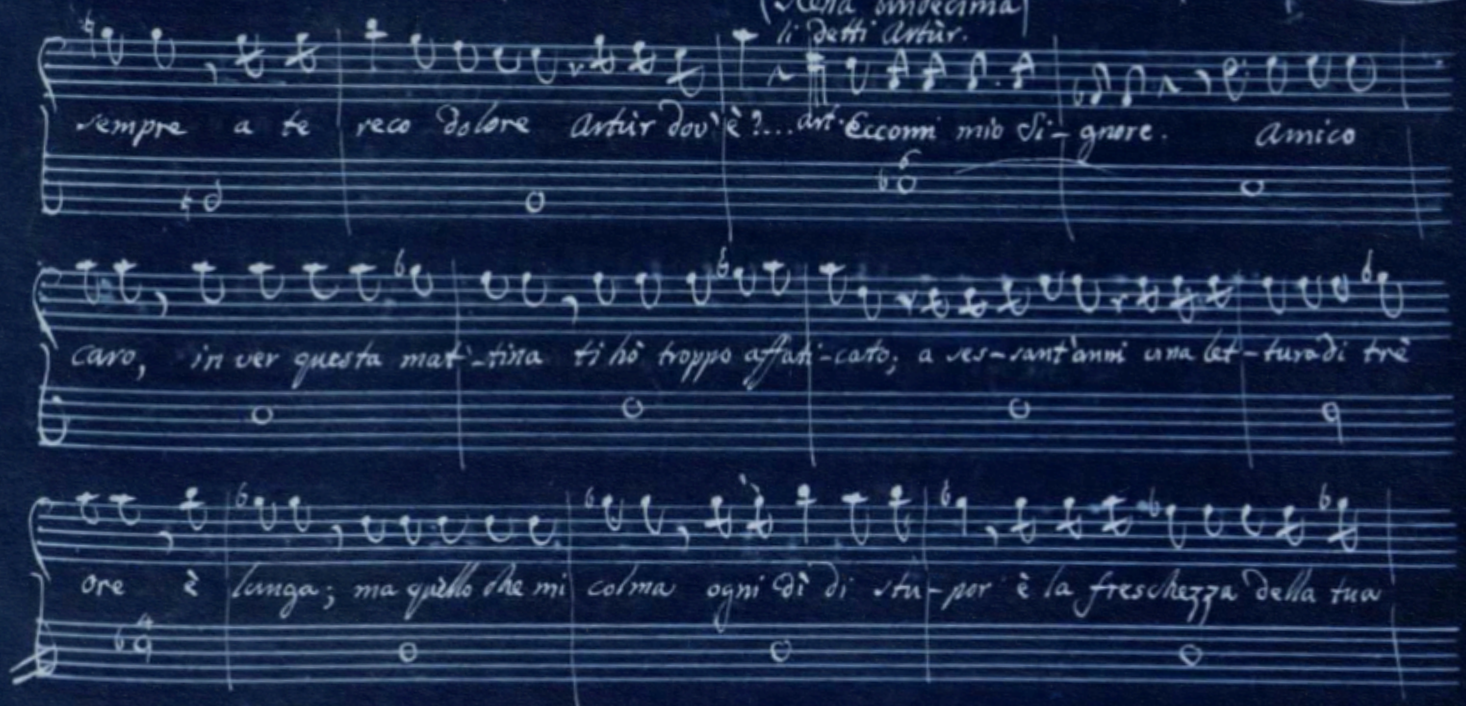 (Scena undecima)
li detti Artùr.
sempre a te reco dolore Artùr dov'è?... Art. Eccomi mio Si-gnore. Amico
caro, in ver questa mat-tina ti hò troppo affati-cato; a ses-sant'anni una let-tura di trè
ore è lunga; ma quello che mi colma ogni dì di stu-por è la freschezza della tua